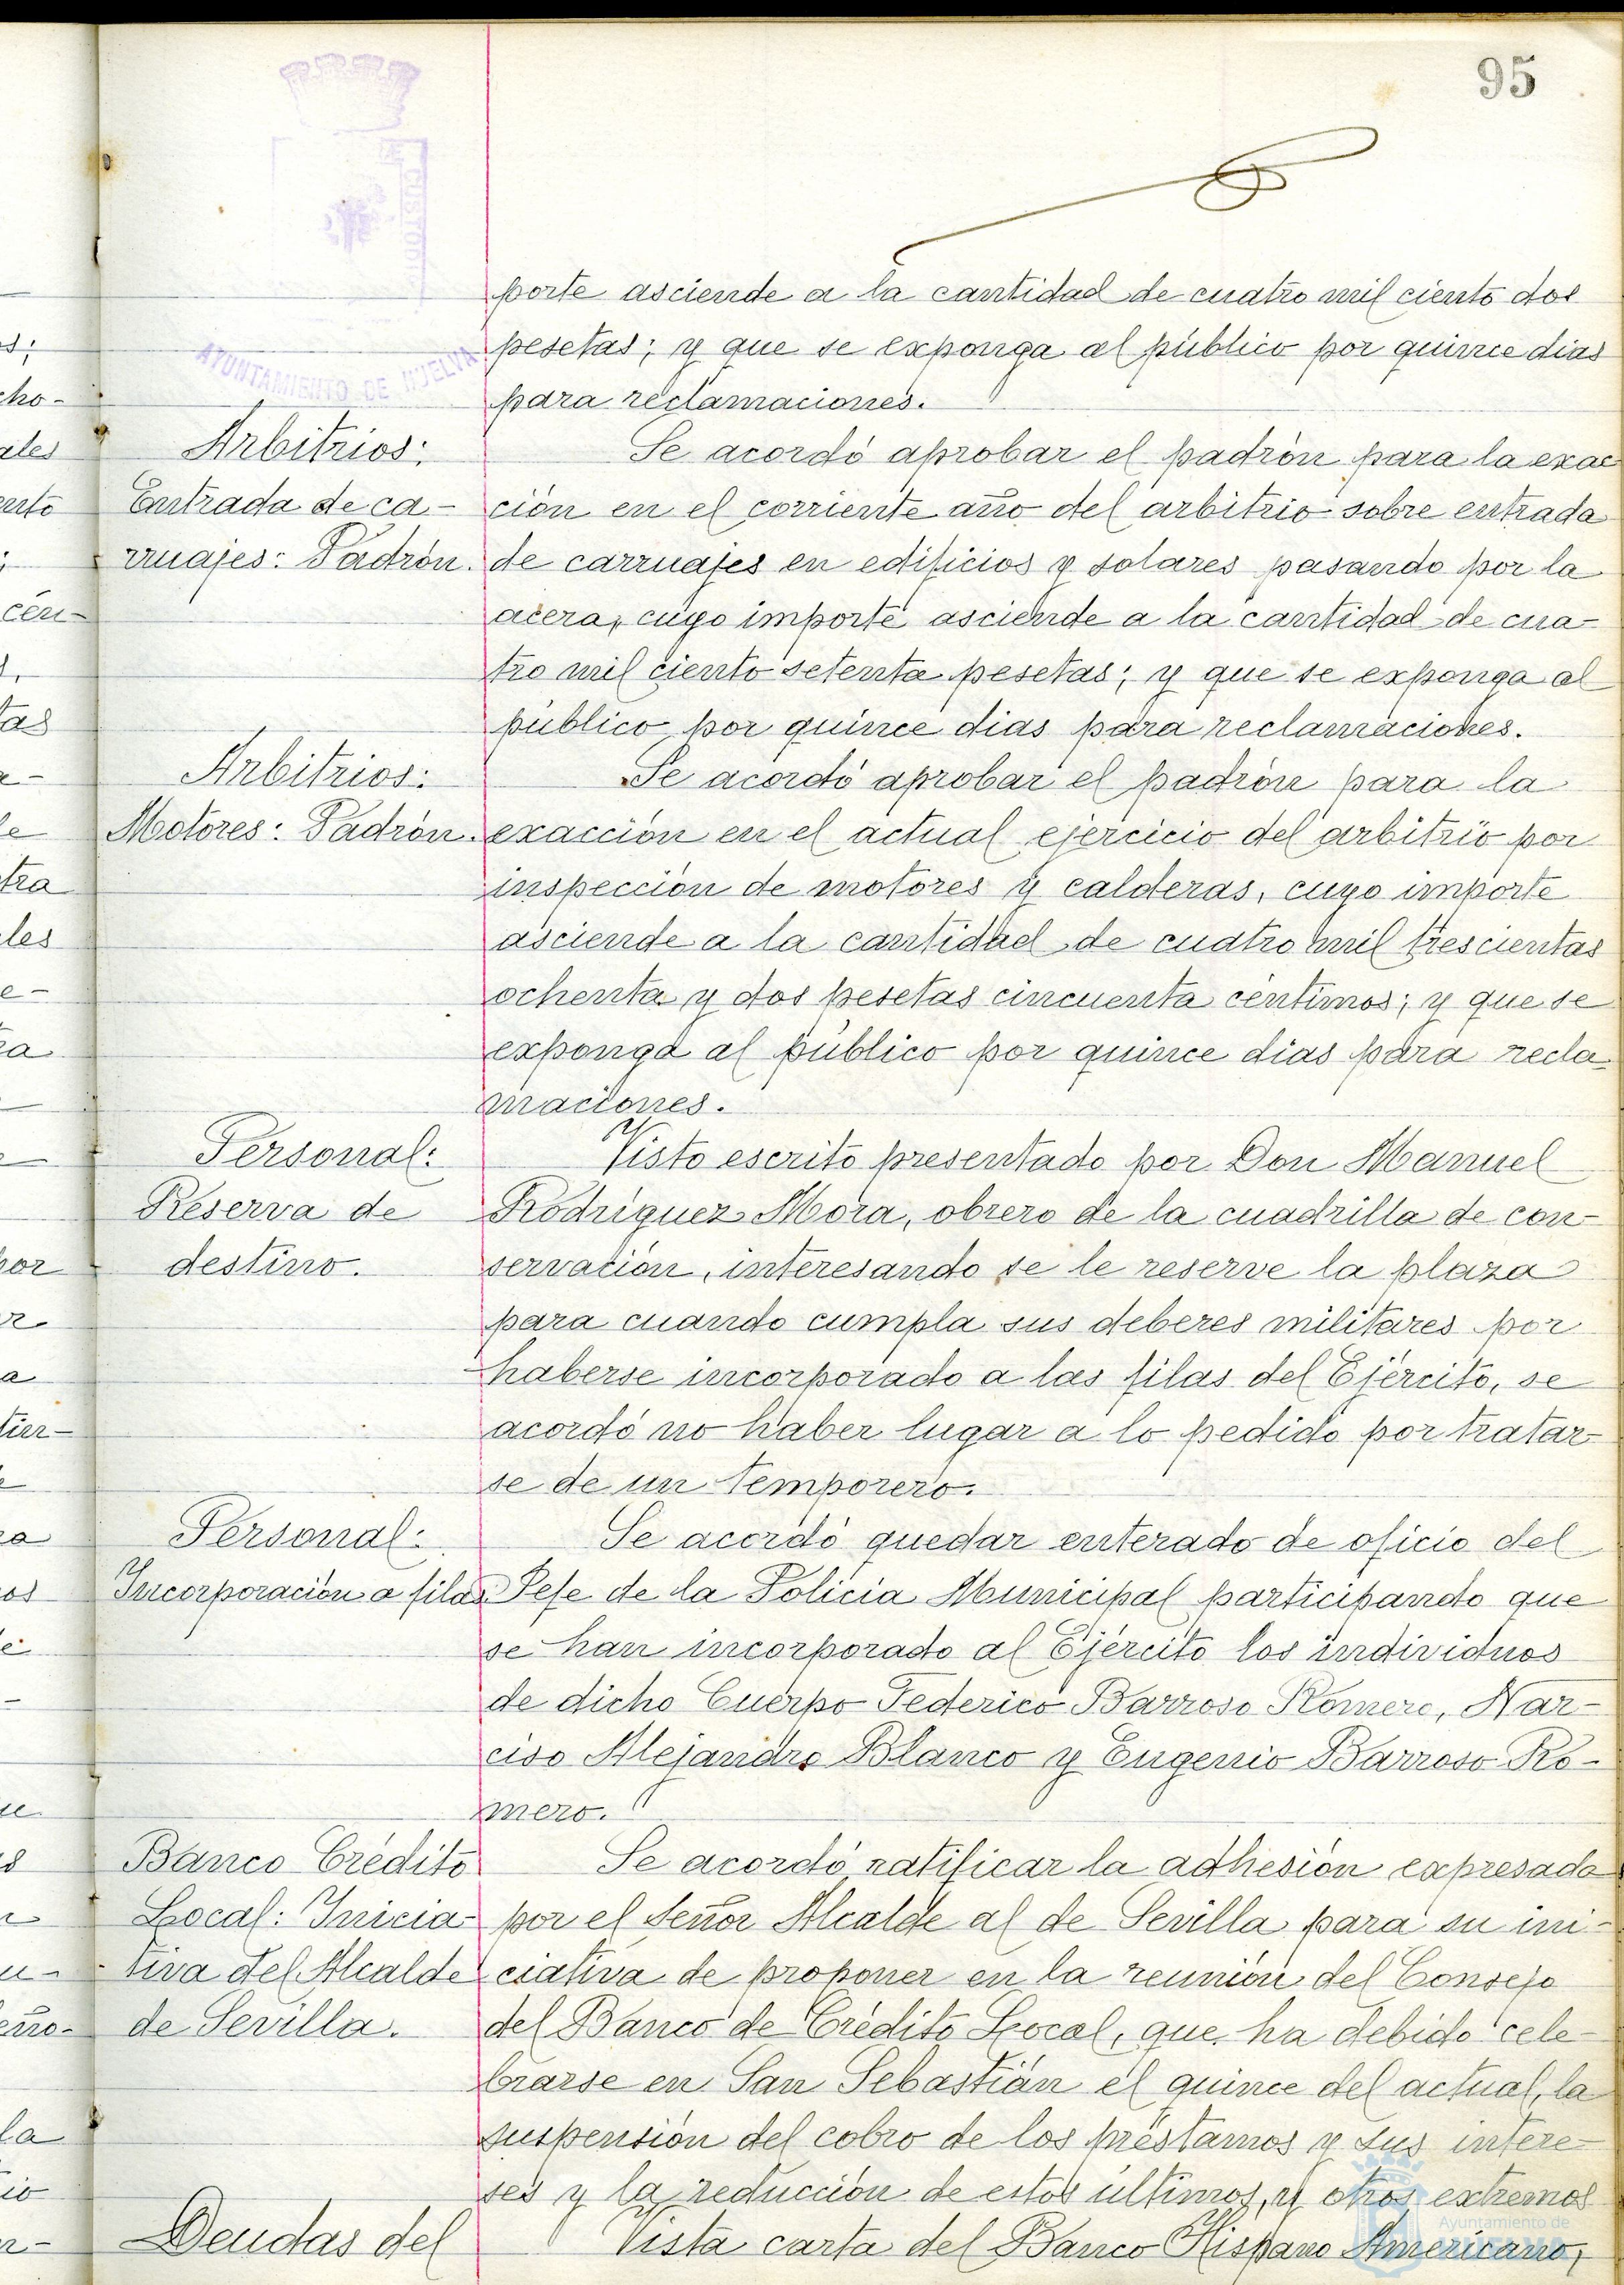 95
porte asciende a la cantidad de cuatro mil ciento dos
pesetas; y que se exponga al público por quince dias
para reclamaciones.
AYUNTAMIENTO DE HUELVA
Arbitrios:
Entrada de ca-
rruajes: Padrón.
Se acordó aprobar el padrón para la exac
ción en el corriente año del arbitrio sobre entrada
de carruajes en edificios y solares pasando por la
acera, cuyo importe asciende a la cantidad de cua-
tro mil ciento setenta pesetas; y que se exponga al
público por quince dias para reclamaciones.
Arbitrios:
Motores: Padrón.
Se acordó aprobar el padrón para la
exacción en el actual ejercicio del arbitrio por
inspección de motores y calderas, cuyo importe
asciende a la cantidad de cuatro mil trescientas
ochenta y dos pesetas cincuenta céntimos; y que se
exponga al público por quince dias para recla-
maciones.
Personal:
Reserva de
destino.
Visto escrito presentado por Don Manuel
Rodríguez Mora, obrero de la cuadrilla de con-
servación, interesando se le reserve la plaza
para cuando cumpla sus deberes militares por
haberse incorporado a las filas del Ejército, se
acordó no haber lugar a lo pedido por tratar-
se de un temporero.
Personal:
Incorporación a filas
Se acordó quedar enterado de oficio del
Jefe de la Policía Municipal participando que
se han incorporado al Ejército los individuos
de dicho Cuerpo Federico Barroso Romero, Nar-
ciso Alejandro Blanco y Eugenio Barroso Ro-
mero.
Banco Crédito
Local: Inicia-
tiva del Alcalde
de Sevilla.
Se acordó ratificar la adhesión expresada
por el Señor Alcalde al de Sevilla para su ini-
ciativa de proponer en la reunión del Consejo
del Banco de Crédito Local, que ha debido cele-
brarse en San Sebastián el quince del actual, la
suspensión del cobro de los préstamos y sus intere-
ses y la reducción de estos últimos, y otros extremos
Deudas del
Vista carta del Banco Hispano Americano,
Ayuntamiento de
HUELVA